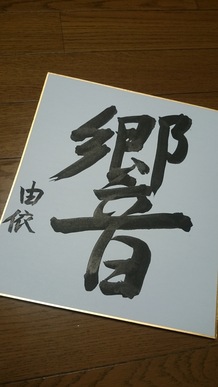 響
由依